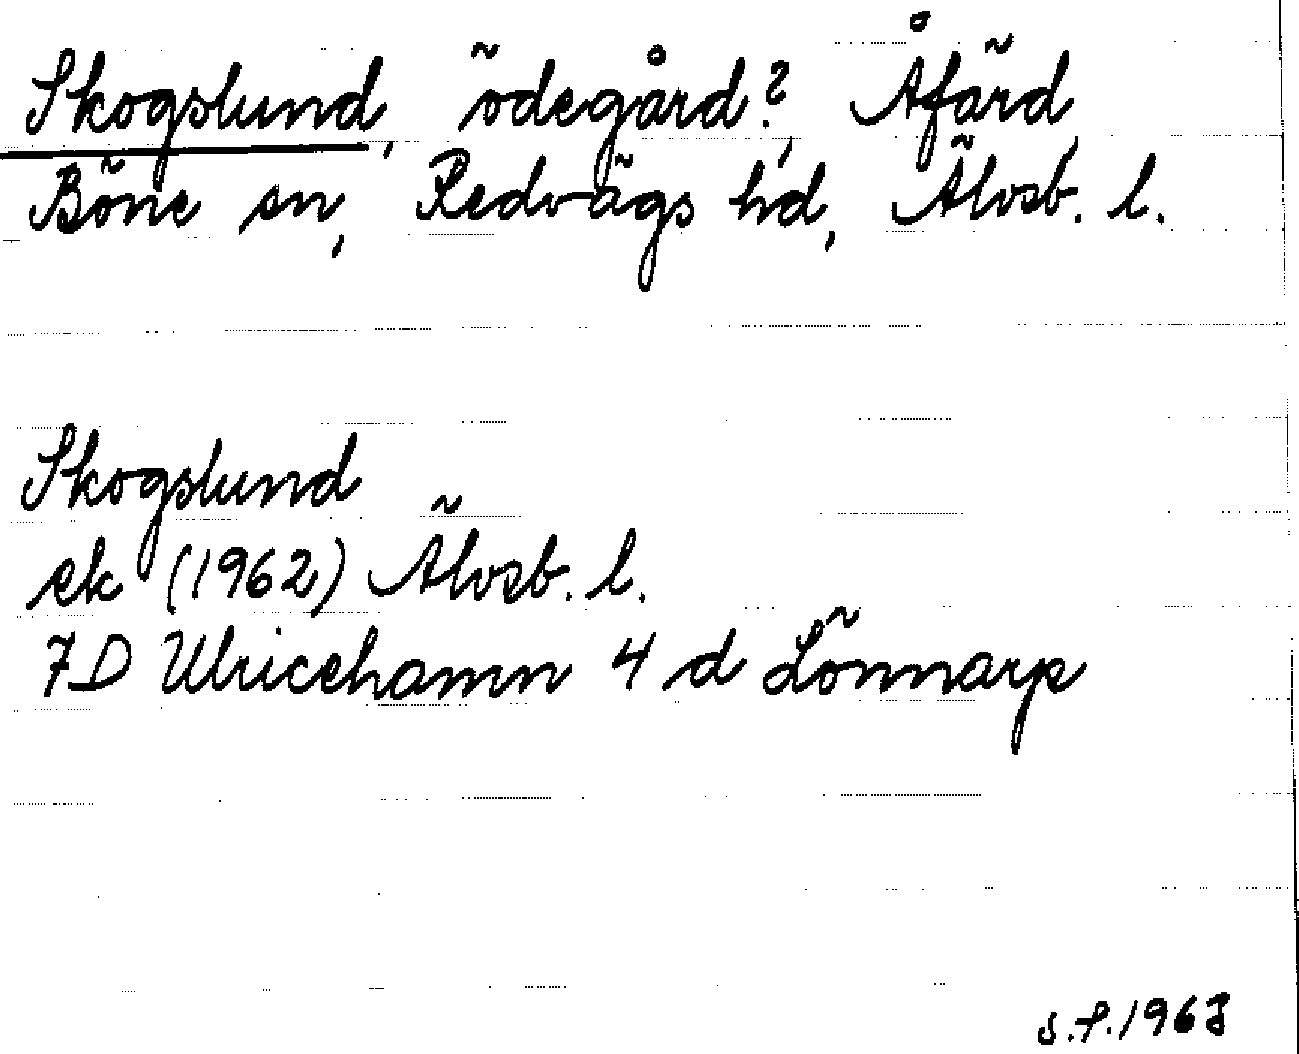 Skogslund, ödegård?, Åfärd,
Böne sn, Redvägs hd, Älvsb. l.
Skogslund
ek (1962) Älvsb. l.
7D Ulricehamn 4 d Lönnarp
S.F. 1963